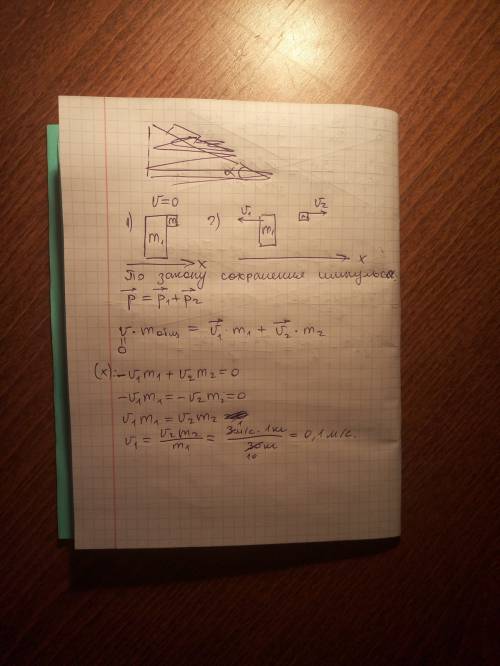 α
V=0
1) m₁ m 2) V₁ m₁ m V₂
x x
По закону сохранения импульса,
p⃗ = p⃗₁+p⃗₂
V · mобщ = V⃗₁ · m₁ + V⃗₂ · m₂
॥
0
(x): -V₁m₁ + V₂m₂ = 0
-V₁m₁ = -V₂m₂ = 0
V₁m₁ = V₂m₂
V₁ = V₂m₂/m₁ = 3м/с · 1кг/30кг = 0,1 м/с.
1
10